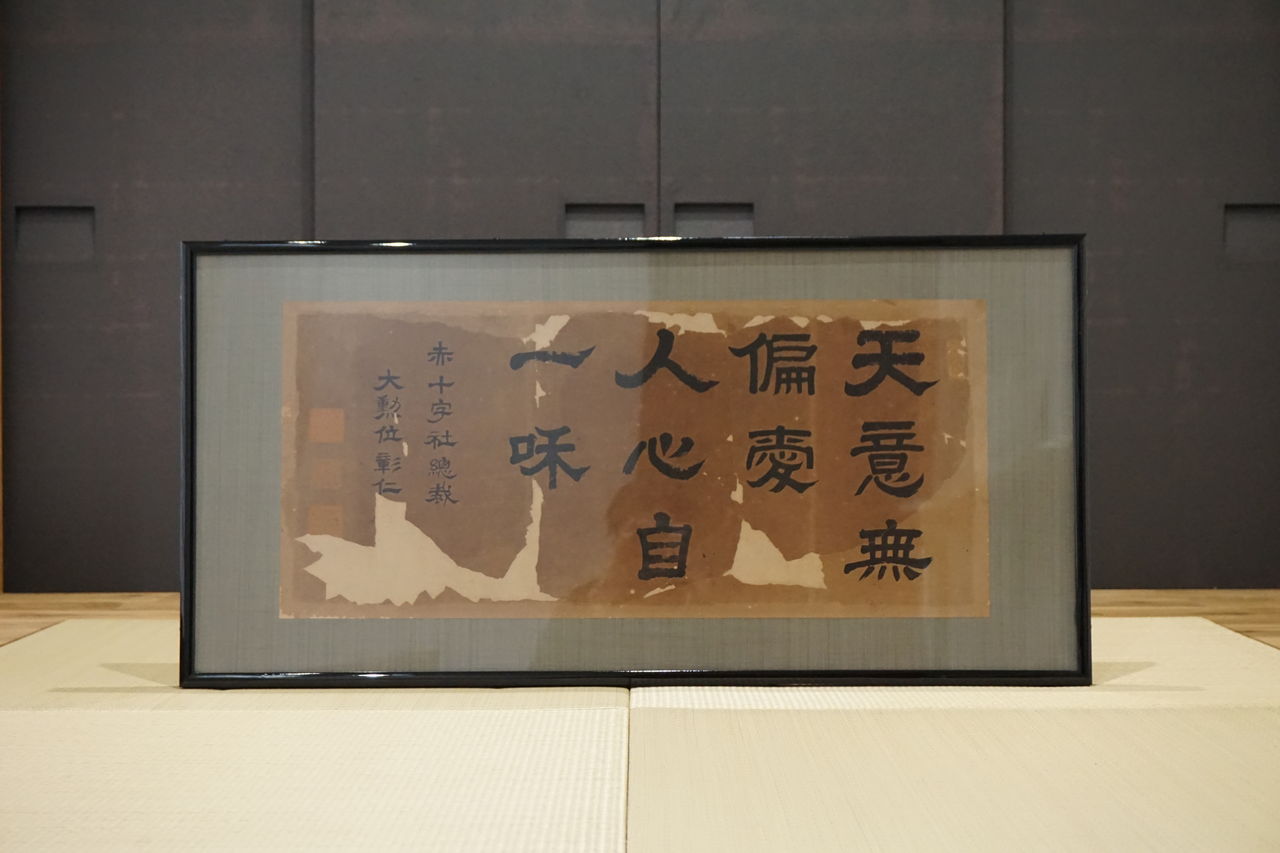 天意無
偏愛
人心自
一味
赤十字社總裁
大勲位彰仁